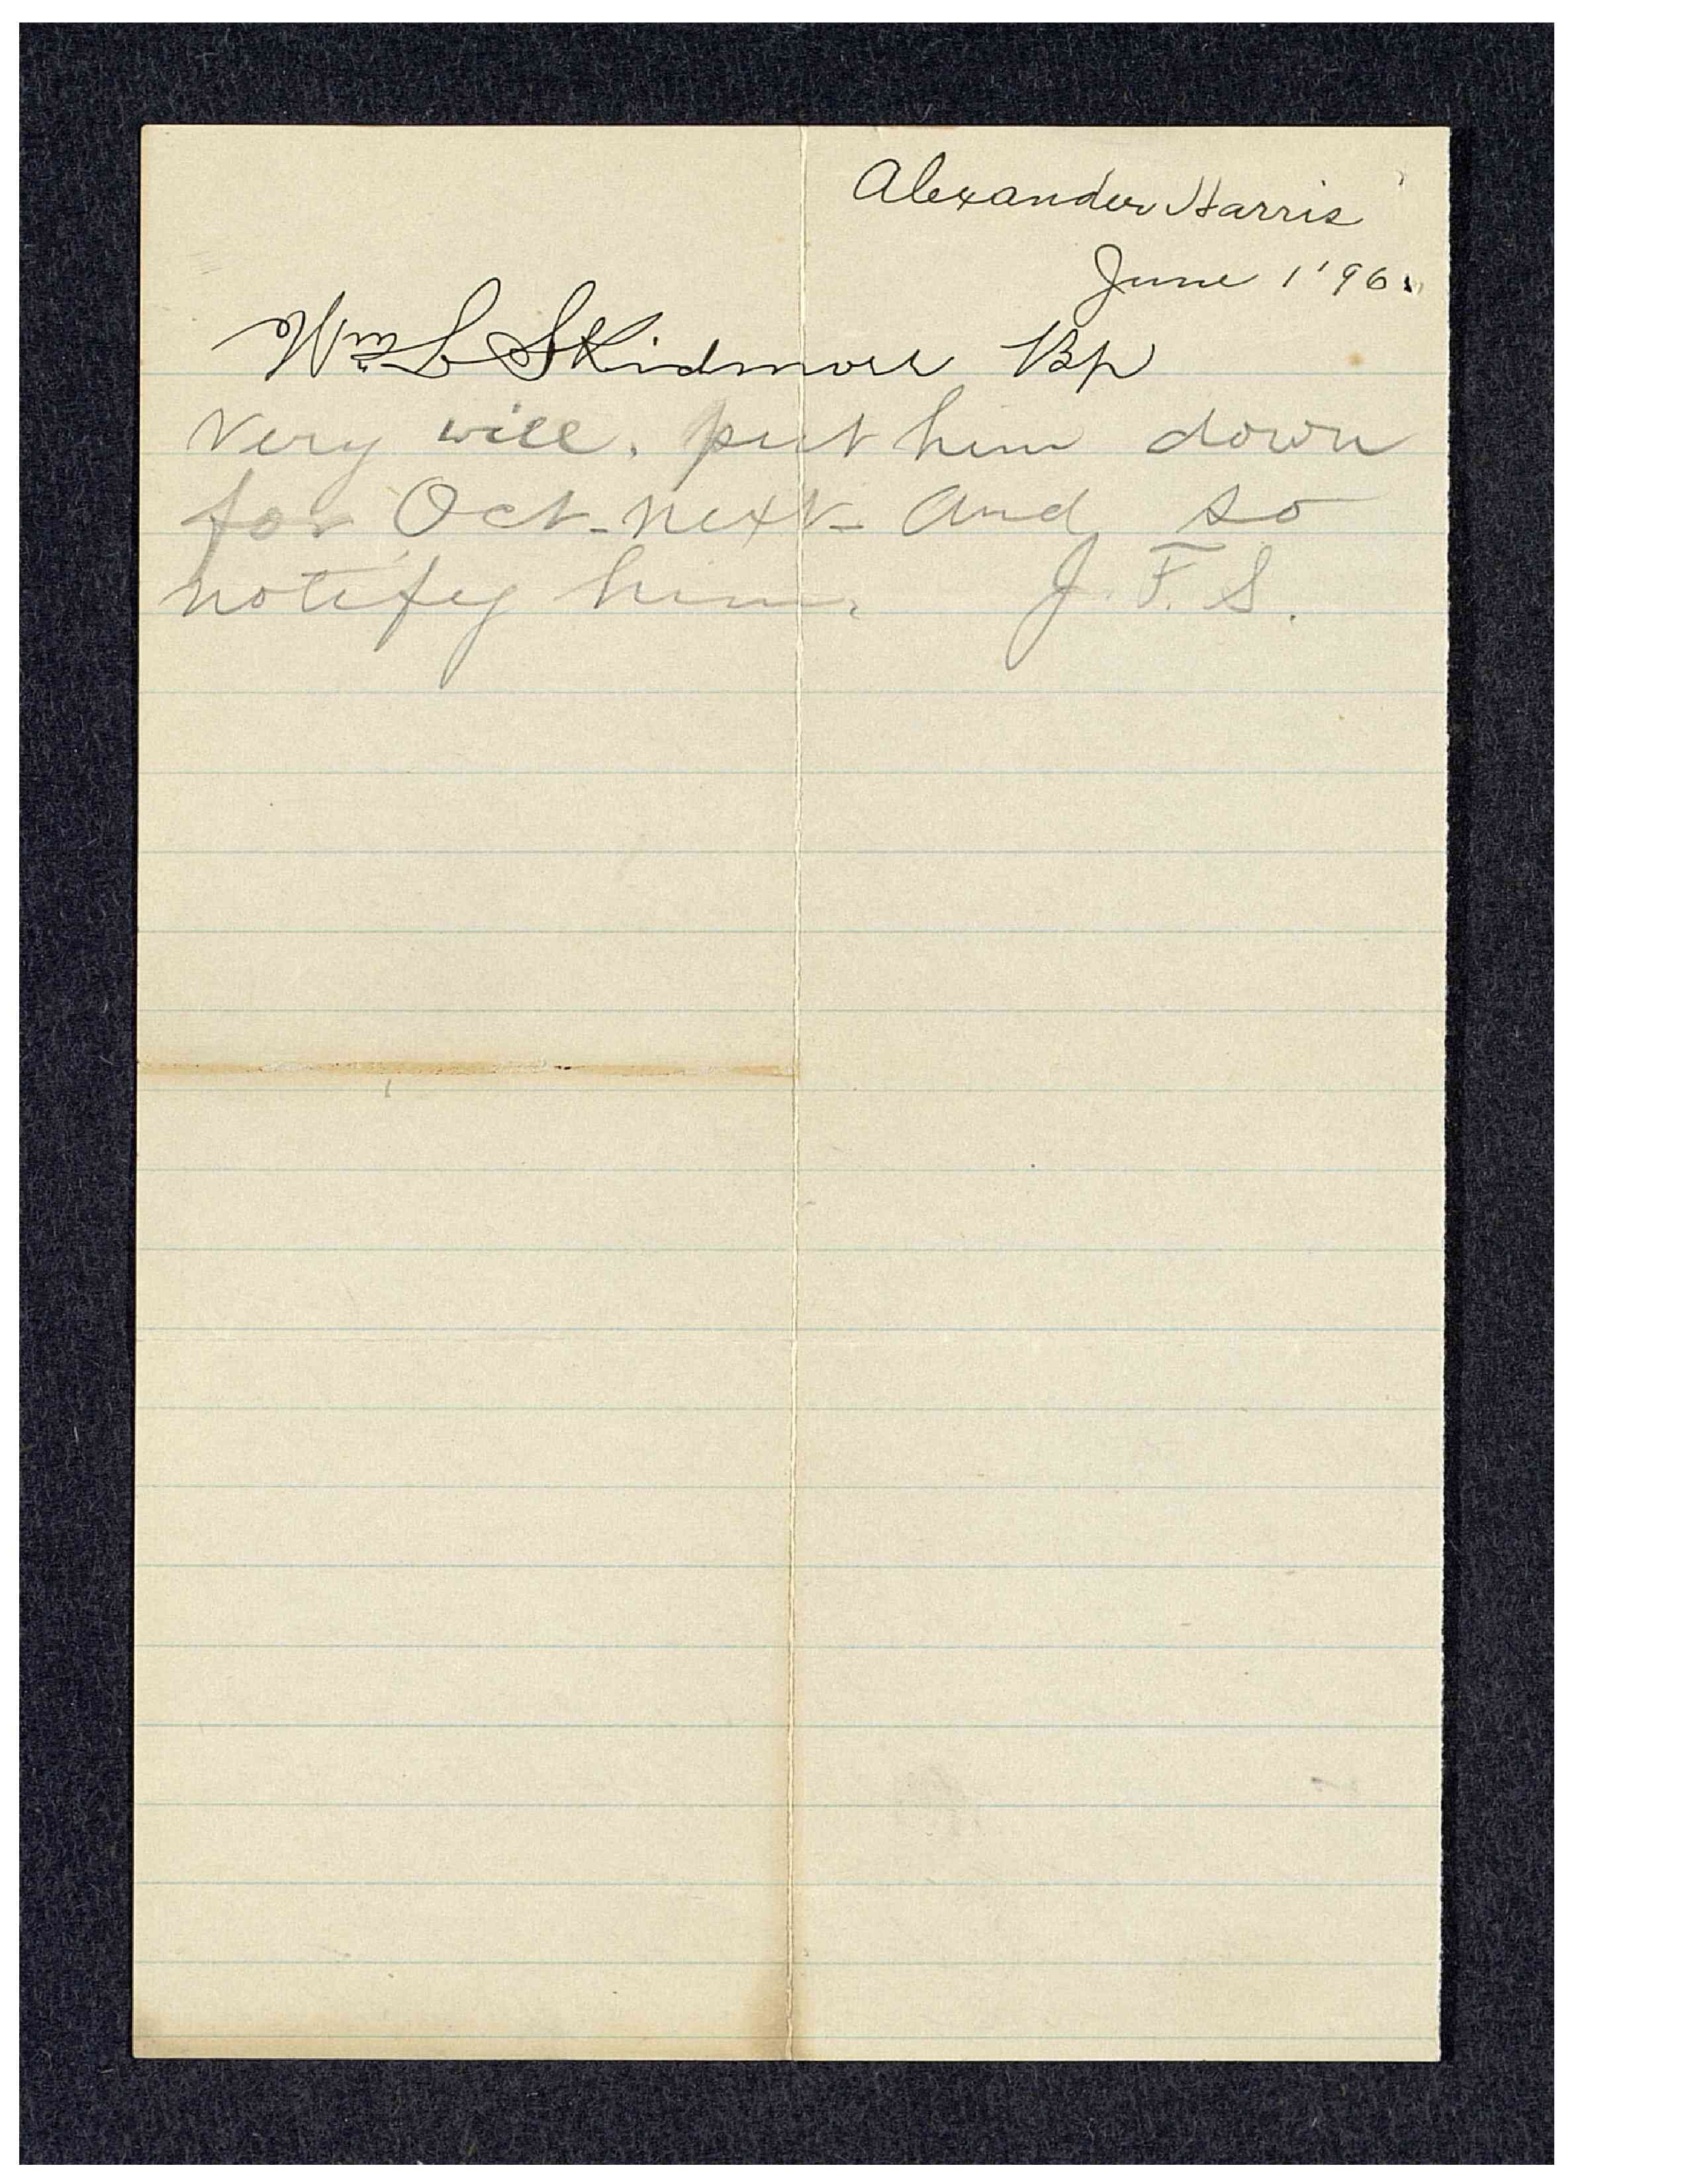 Alexander Harris
June 1 '96.
Wm L Skidmore Bp
Very well. put him down
for Oct. next- And so
notify him. J. F. S.